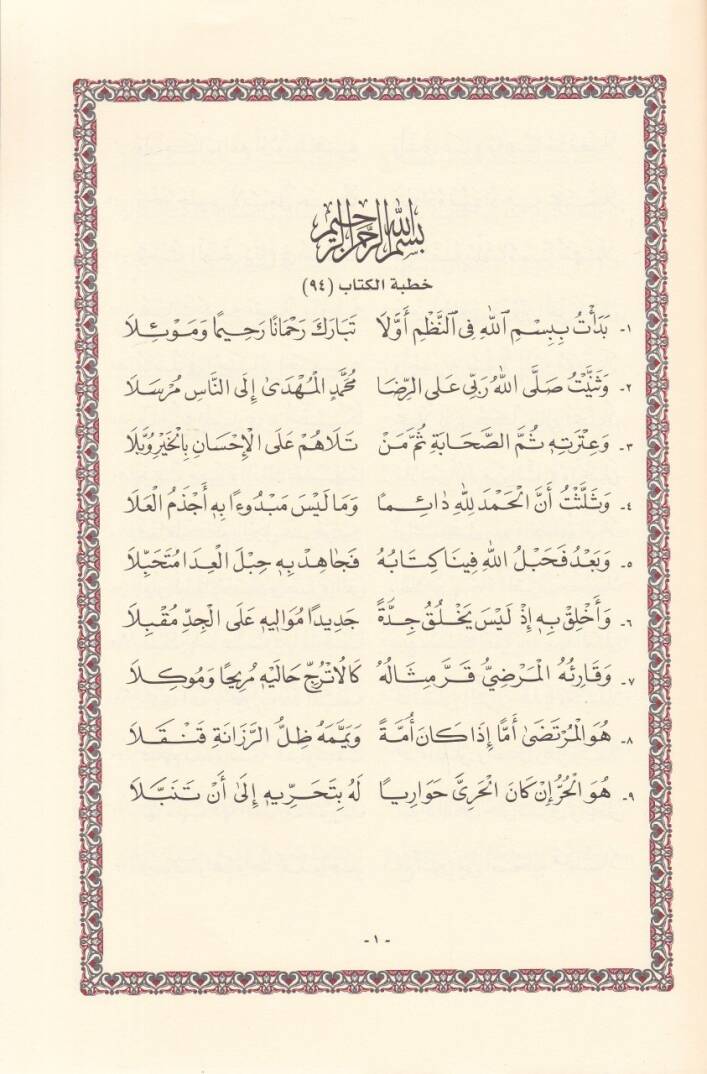 بسم الله الرحمن الرحيم
خطبة الكتاب (٩٤)
١- بَدَأْتُ بِبِسْمِ ٱللَّهِ فِي ٱلنَّظْمِ أَوَّلَا تَبَارَكَ رَحْمَانًا رَحِيمًا وَمَوْئِلَا
٢- وَثَنَّيْتُ صَلَّى اللهُ رَبِّي عَلَى الرِّضَا مُحَمَّدٍ الْمُهْدَىٰ إِلَى النَّاسِ مُرْسَلَا
٣- وَعِتْرَتِهِ ثُمَّ الصَّحَابَةِ ثُمَّ مَنْ تَلَاهُمْ عَلَى الْإِحْسَانِ بِالْخَيْرِ وُبَّلَا
٤- وَثَلَّثْتُ أَنَّ الْحَمْدَ لِلَّهِ دَائِمًا وَمَا لَيْسَ مَبْدُوءًا بِهِ أَجْذَمُ الْعَلَا
٥- وَبَعْدُ فَحَبْلُ اللهِ فِينَا كِتَابُهُ فَجَاهِدْ بِهِ حِبْلَ الْعِدَا مُتَحَبِّلَا
٦- وَأَخْلِقْ بِهِ إِذْ لَيْسَ يَخْلُقُ جِدَّةً جَدِيدًا مُوَالِيهِ عَلَى الْجِدِّ مُقْبِلَا
٧- وَقَارِئُهُ الْمَرْضِيُّ قَرَّ مِثَالُهُ كَالُاتْرُجِّ حَالَيْهِ مُرِيحًا وَمُوكِلَا
٨- هُوَ الْمُرْتَضَىٰ أَمًّا إِذَا كَانَ أُمَّةً وَيَمَّمَهُ ظِلُّ الرَّزَانَةِ قَنْقَلَا
٩- هُوَ الْحُرُّ إِنْ كَانَ الْحَرِيَّ حَوَارِيًا لَهُ بِتَحَرِّيهِ إِلَىٰ أَنْ تَنَبَّلَا
- ١ -